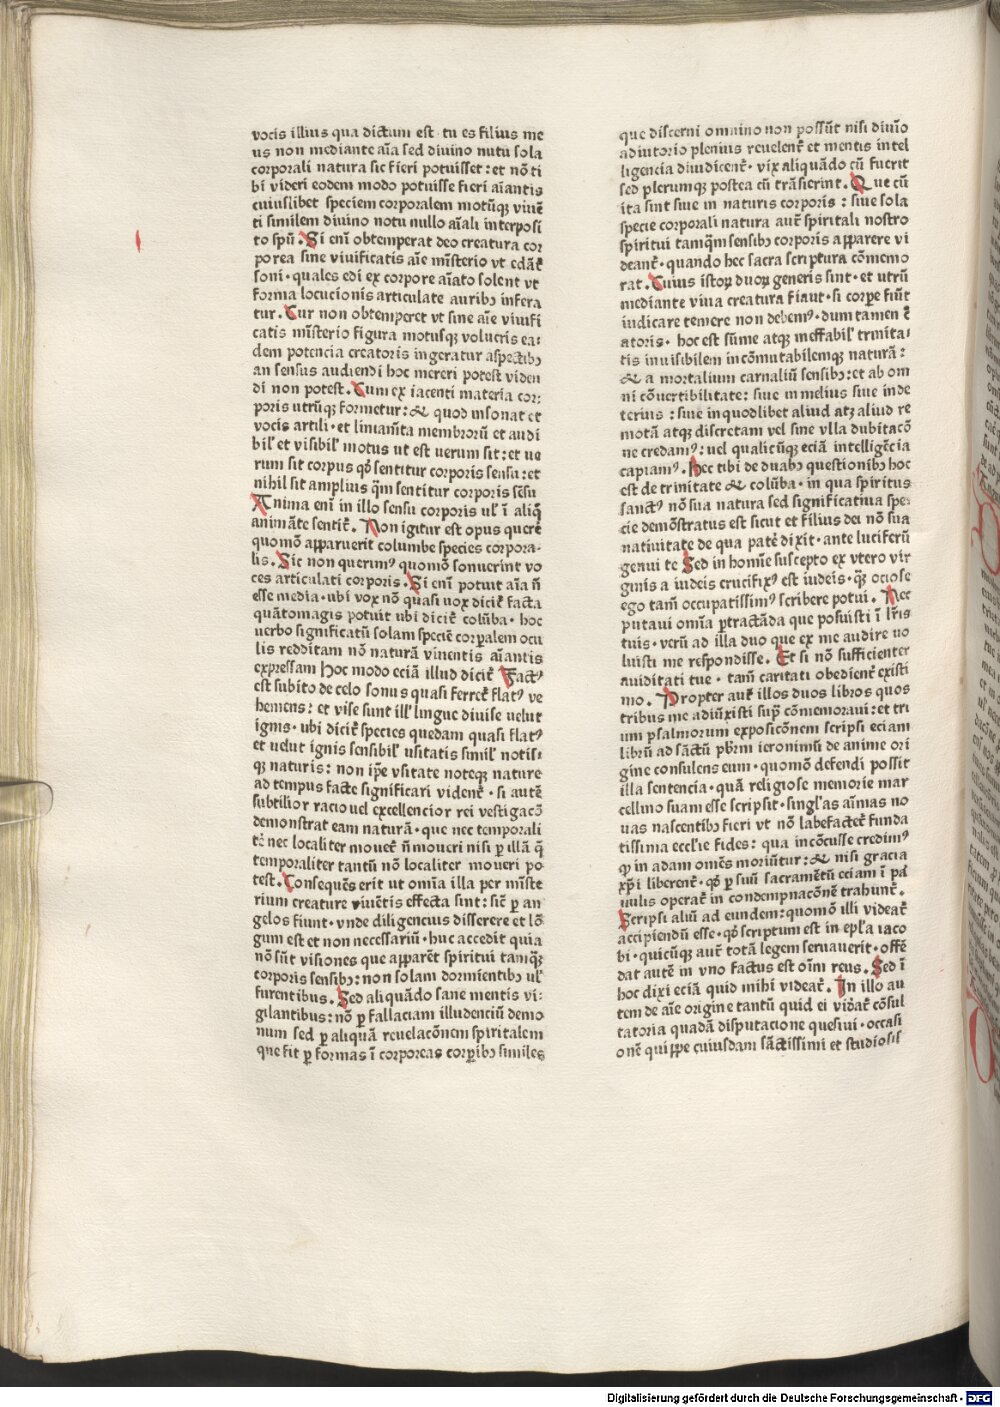 vocis illius qua dictum est · tu es filius me
us non mediante aīa sed divino nutu sola
corporali natura sic fieri potuisset : et nō ti
bī videri eodem modo potuisse fieri aīantis
cuiuslibet speciem corporalem motūqꝫ viuē
ti similem divino notu nullo aīali interposi
to spū. Si enī obtemperat deo creatura cor
porea sine viuificatis aīe mīsterio vt edāt̄
soni · quales edi ex corpore aīato solent vt
forma locucionis articulate auribꝫ infera
tur. Cur non obtemperet vt sine aīe viuifi
catis mīsterio figura motusqꝫ volucris ea-
dem potencia creatoris ingeratur aspectibꝫ
an sensus audiendi hoc mereri potest viden
di non potest. Cum ex iacenti materia cor-
poris utrūqꝫ formetur : & quod insonat et
vocis artili · et linianīta membrorū et audi
bil' et visibil' motus ut est uerum sit : et ue
rum sit corpus qđ sentitur corporis sensu : et
nihil sit amplius q̄m sentitur corporis sēsu
Anima enī in illo sensu corporis ul' ī aliq̄
animāte sentit̄. Non igitur est opus querē
quomō apparuerit columbe species corpora-
lis. Sic non querimꝰ quomō sonuerint vo
ces articulati corporis. Si enī potuit aīa n̄
esse media · ubi vox nō quasi uox dicit̄ facta
quātomagis potuit ubi dicit̄ colūba · hoc
uerbo significatū solam speciē corꝑalem ocu
lis redditam nō naturā viuentis aīantis
expressam Hoc modo eciā illud dicit̄ Factꝰ
est subito de celo sonus quasi ferret̄ flatꝰ ve
hemens : et vise sunt ill' lingue diuise uelut
ignis · ubi dicit̄ species quedam quasi flatꝰ
et uelut ignis sensibil' usitatis simil' notis-
qꝫ naturis : non ip̄e vsitate noteqꝫ nature
ad tempus facte significari vident̄ · si autē
subtilior racio uel excellencior rei vestigacō
demonstrat eam naturā · que nec temporali
t̄ nec localiter mouet̄ n̄ moueri nisi ꝑ illā q̄
temporaliter tantū nō localiter moueri po-
test. Consequēs erit ut omīa illa per mīste
rium creature viuētis effecta sint : sic̄ ꝑ an
gelos fiunt · vnde diligencius disserere et lō
gum est et non necessariū · huc accedit quia
nō sūt visiones que apparēt spiritui tamqꝫ
corporis sensibꝫ : non solam dormientibꝫ ul'
furentibus. Sed aliquādo sane mentis vi-
gilantibus : nō ꝑ fallaciam illudenciū demo
num sed ꝑ aliquā reuelacōnem spiritalem
que fit ꝑ formas ī corporeas corꝑibꝫ similes
que discerni omnino non possūt nisi diuīo
adiutorio plenius reuelent̄ et mentis intel
ligencia diiudicent̄ · vix aliquādo cū fuerit
sed plerumqꝫ postea cū trāsierint. Que cū
ita sint siue in naturis corporis : siue sola
specie corporali natura aut̄ spiritali nostro
spiritui tamq̄m sensibꝫ corporis apparere vi
deant̄ · quando hec sacra scriptura cōmemo
rat. Cuius istoꝝ duoꝝ generis sint · et utrū
mediante viua creatura fiaut · si corꝑe fiūt
iudicare temere non debemꝰ · dum tamen c̄
atoris · hoc est sūme atqꝫ ineffabil' trinita-
tis inuisibilem incōmutabilemqꝫ naturā :
& a mortalium carnaliū sensibꝫ : et ab om
ni cōuertibilitate : siue in melius siue inde
terius : siue in quodlibet aliud atqꝫ aliud re
motā atqꝫ discretam vel sine vlla dubitacō
ne credamꝰ : uel qualicūqꝫ eciā intelligēcia
capiamꝰ. Hec tibi de duabꝫ questionibꝫ hoc
est de trinitate & colūba · in qua spiritus
sanctꝰ nō sua natura sed significatiua spe-
cie demōstratus est sicut et filius dei nō sua
natiuitate de qua pat̄ dixit · ante luciferū
genui te Sed in homīe suscepto ex vtero vir
ginis a iudeis crucifixꝰ est iudeis · q̄ ociose
ego tam̄ occupatissimꝰ scribere potui. Nec
putaui omīa ꝑtractāda que posuisti ī lr̄is
tuis · verū ad illa duo que ex me audire uo
luisti me respondisse. Et si nō sufficienter
auiditati tue · tam̄ caritati obedient̄ existi
mo. Propter aut̄ illos duos libros quos
tribus me adiūxisti sup̄ cōmemoraui : et tri
um psalmorum exposicōnem scripsi eciam
librū ad sāctū pb̄rm ieronimū de anime ori
gine consulens eum · quomō defendi possit
illa sentencia · quā religiose memorie mar
cellino suam esse scripsit · singl'as aīmas no
uas nascentibꝫ fieri vt nō labefactet̄ funda
tissima eccl'ie fides : qua incōcusse credimꝰ
qꝫ in adam omēs moriūtur : & nisi gracia
xp̄i liberent̄ · qđ ꝑ suū sacramētū eciam ī pa
uulis operat̄ in condempnacōnē trahunt̄.
Scripsi aliū ad eundem : quomō illi videat̄
accipiendū esse · qđ scriptum est in epl'a iaco
bi · quicūqꝫ aut̄ totā legem seruauerit · offē
dat autē in vno factus est oīm reus. Sed ī
hoc dixi eciā quid mihi videat̄. In illo au
tem de aīe origine tantū quid ei vid̄at̄ cōsul
tatoria quadā disputacione quesiui · occasi
onē quippe cuiusdam sāctissimi et studiosis
Digitalisierung gefördert durch die Deutsche Forschungsgemeinschaft - DFG